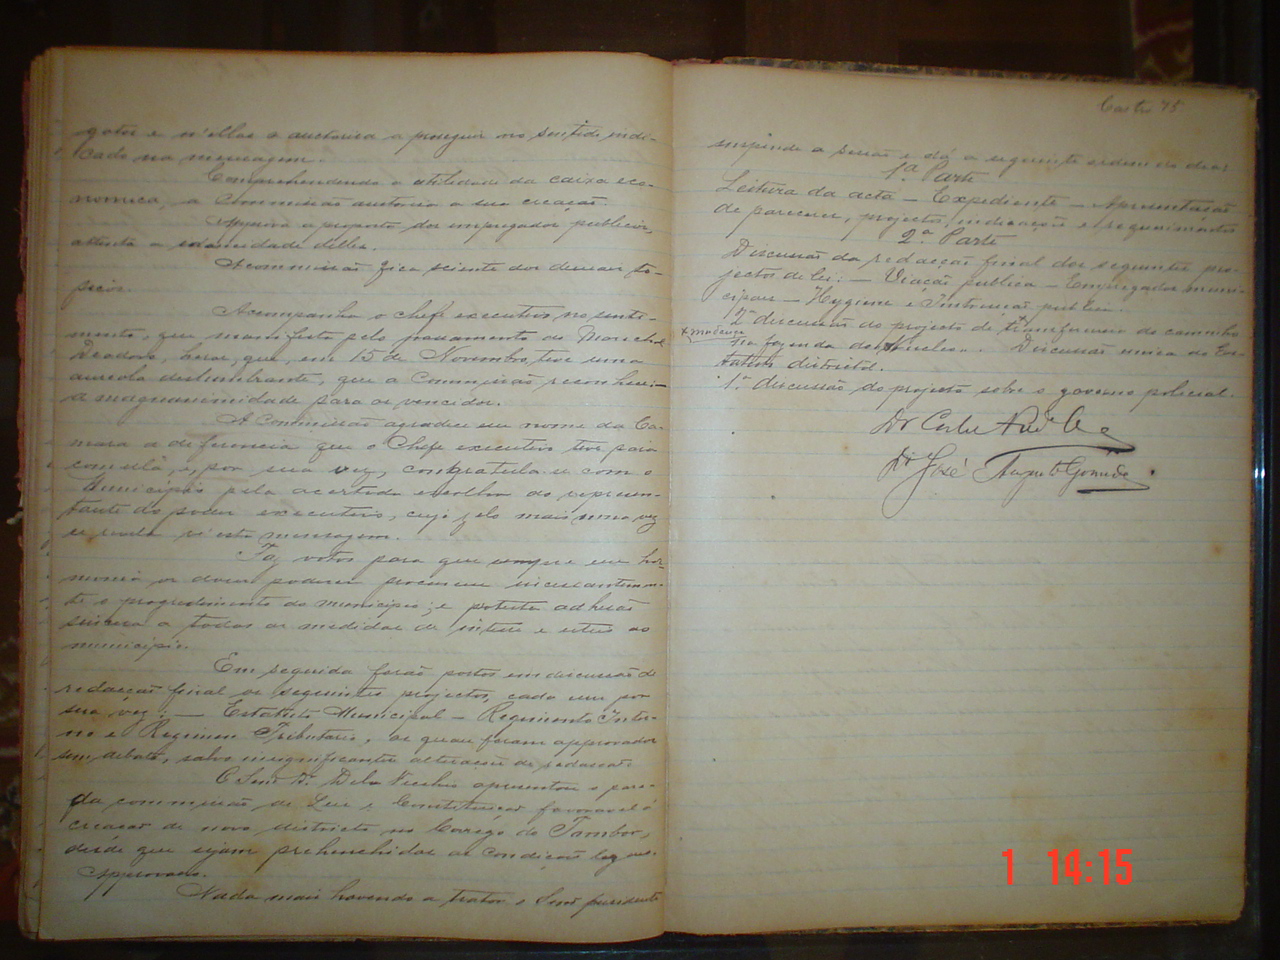 gatos e n'ellas o auctorisa a proseguir no sentido indi-
cado na mensagem.
Comprehendendo a utilidade da caixa eco-
nomica, a Commissão auctorisa a sua creação.
Approva a proposta dos empregados publicos,
attenta a idoneidade delles.
A commissão fica sciente dos demais to-
picos.
Acompanha o chefe executivo no senti-
mento, que manifesta pelo passamento do Marechal
Deodoro, heroe, que, em 15 de Novembro, teve uma
aureola deslumbrante, que a Commissão reconhece
a magnanimidade para os vencidos.
A Commissão agradece em nome da Ca-
mara a deferencia que o Chefe executivo teve para
com ella, e, por sua vez, congratula-se com o
Municipio pela acertada escolha do represen-
tante do poder executivo, cujo zelo mais uma vez
se revela n'esta mensagem.
Faz votos para que sempre em har-
monia os dous poderes procurem incessantemen-
te o progredimento do municipio; e protesta adhesão
sincera a todas as medidas de interesse e uteis ao
municipio.
Em seguida forão postos em discussão de
redacção final os seguintes projectos, cada um por
sua vez: — Estatuto Municipal — Regimento Inter-
no e Regimen Tributario, os quaes foram approvados
sem debate, salvo insignificantes alterações de redacção.
O Senr Dr. Dela Vecchia apresentou o pare-
da commissão de Leis e Constituição favoravel á
creação de novo districto no Corrego do Tambor,
desde que sejam prehenchidas as condições legaes.
Approvado.
Nada mais havendo a tratar o Senr presidente
Castro 75
suspende a sessão e dá a seguinte ordem do dia:
1ª Parte
Leitura da acta — Expediente — Apresentação
de pareceres, projectos, indicações e requerimentos
2ª Parte
Discussão da redacção final dos seguintes pro-
jectos de lei: — Viação publica — Empregados muni-
cipaes — Hygiene e Instrucção publica.
2ª discussão do projecto de transferencia do caminho
x mudança
na fazenda do Nucleo. Discussão unica do Es-
tatuto districtal.
1ª discussão do projecto sobre o governo policial.
Dr
Dr José Augusto
1 14:15